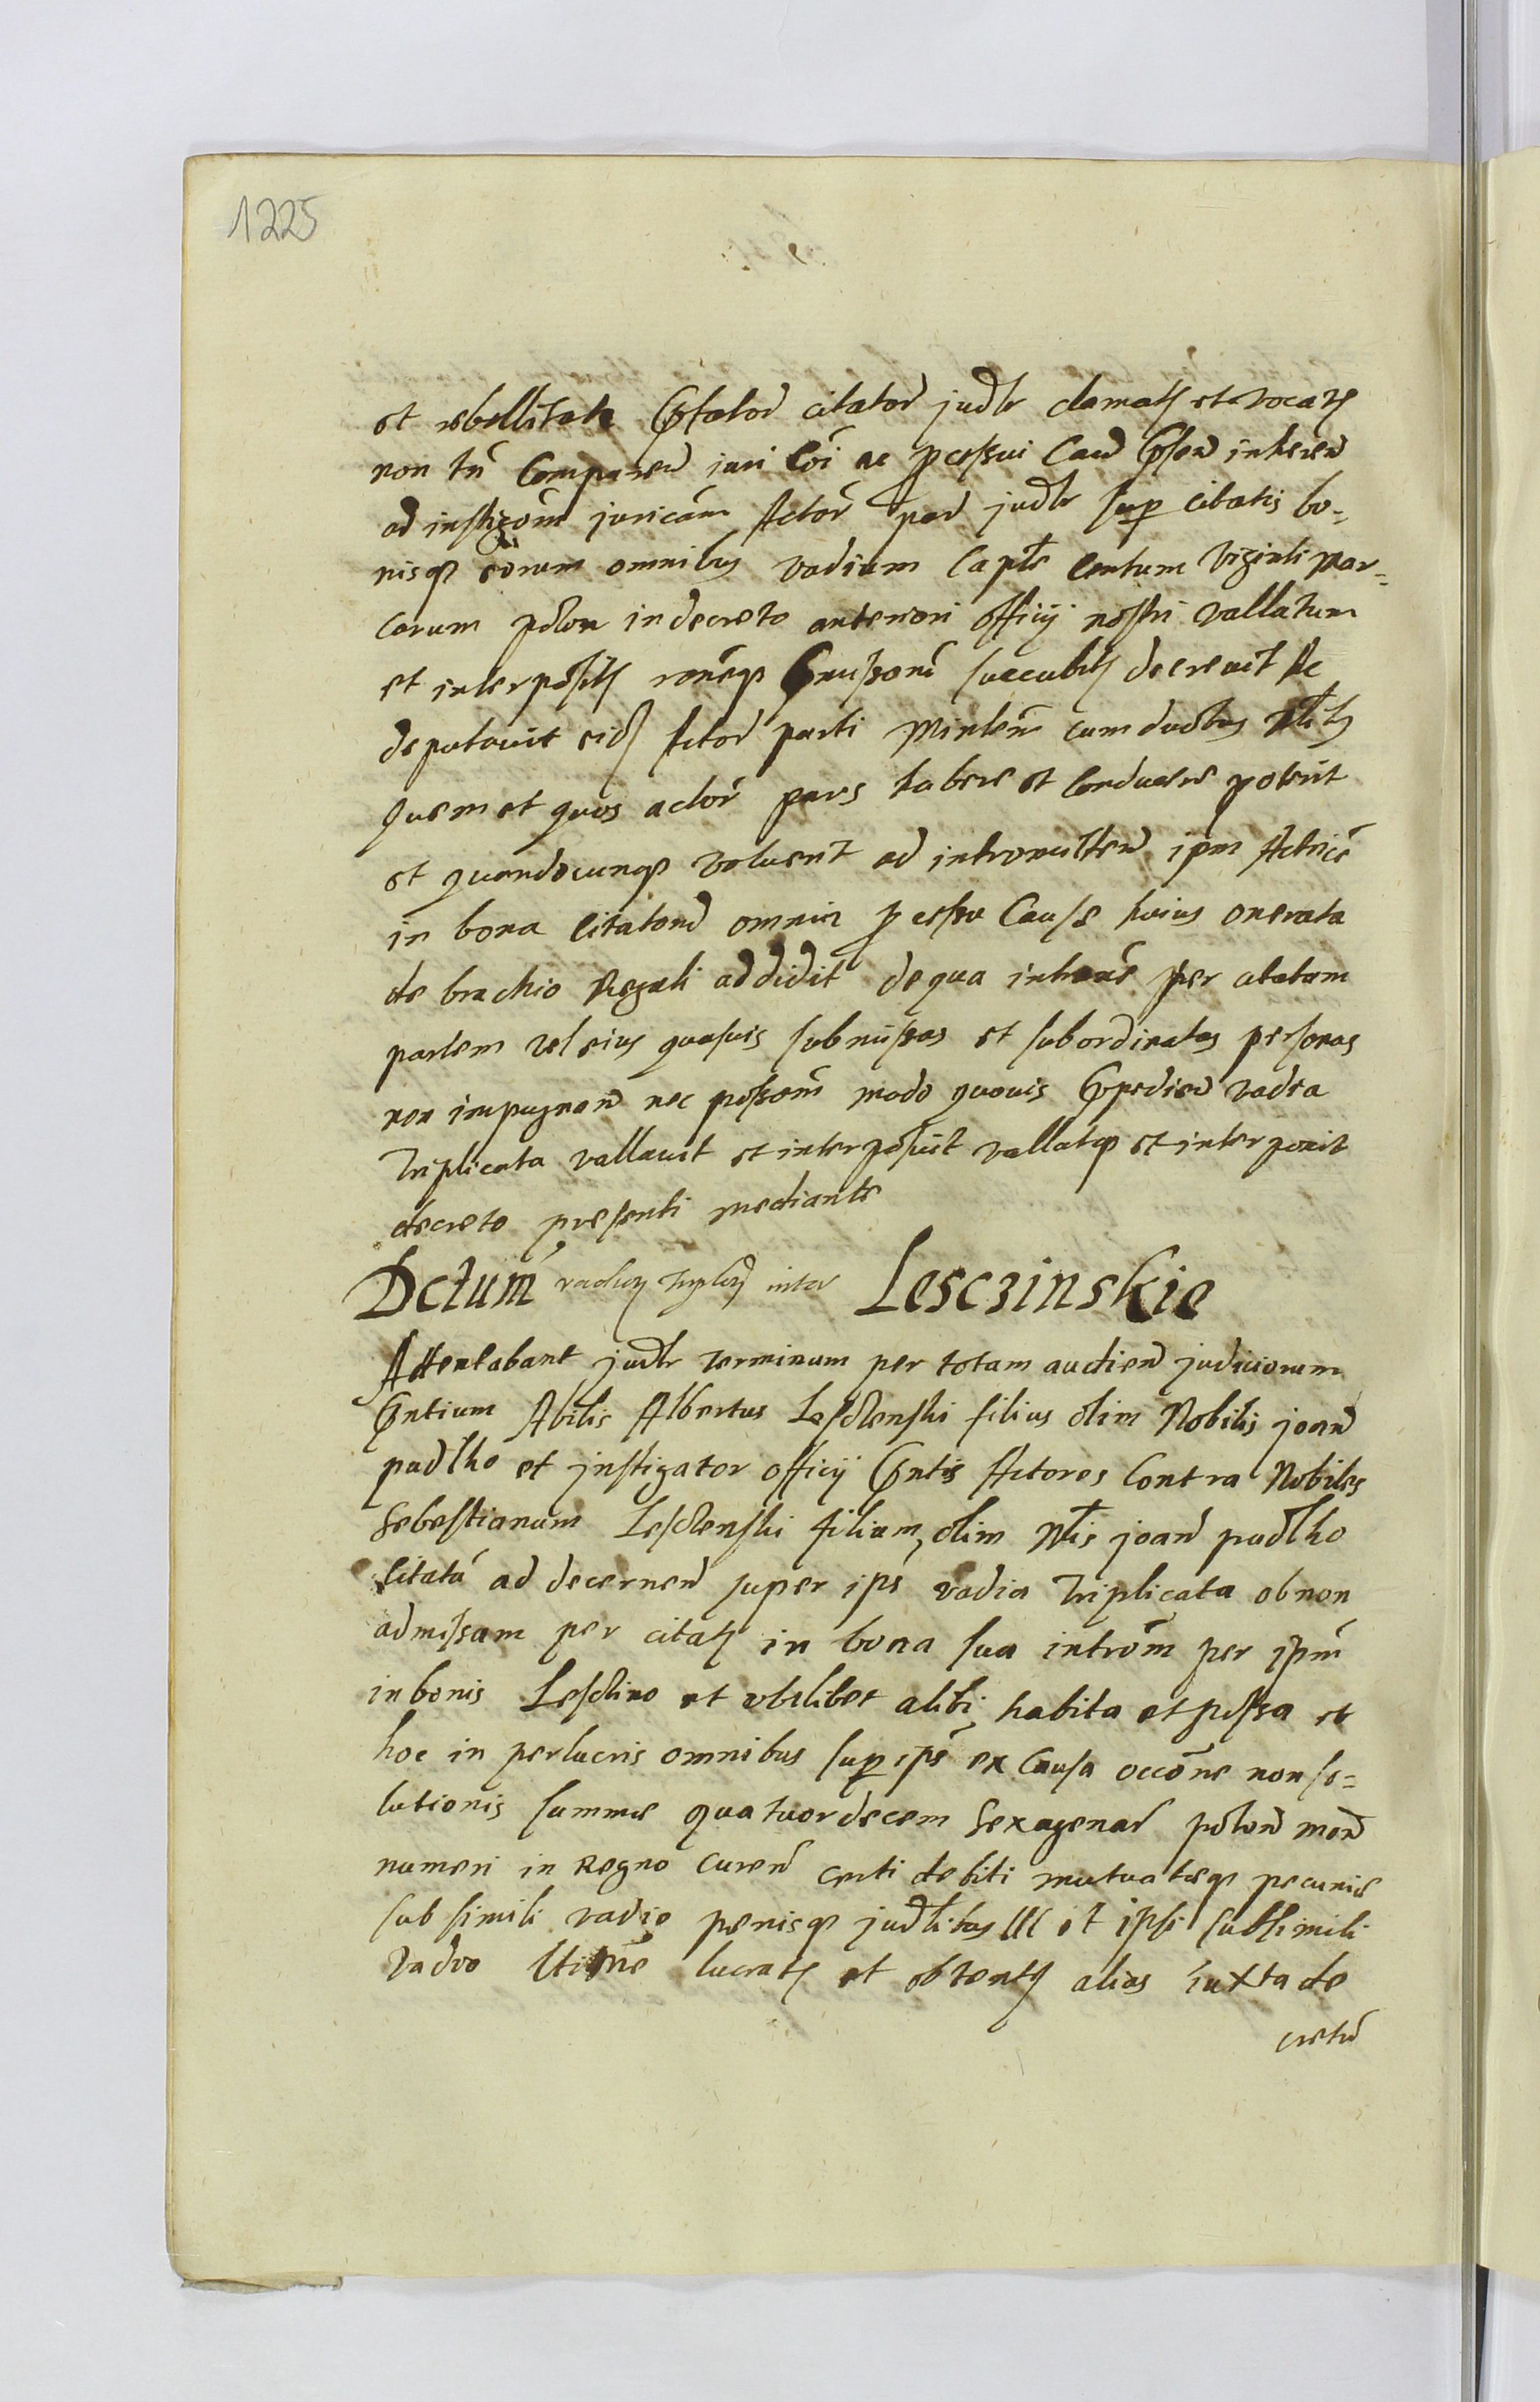 1225
et rebellitate citator judlr clamatz et vocatz
non tn Comparen iuri coi ac pcessui Cau inheren
ad instigom juricam Actor par judlr sup citatis bo-
nisq eorum omnibus vadium Centum viginti mar-
carum polon in decreto anteriori officij nostri vallatum
et interpositz succubitz decrevit Ac
deputavit eid Actor parti Minlem cum duobus
quem et quos actor pars habere et conducere poterit
et quandocunq voluerit ad intromitten ipm Actrice
in bona Citatord omnia pcessu Cause huius onerata
de brachio Regali addidit de qua introme per citatam
partem vel eius quasvis submissas et subordinatas personas
non impugnan nec possom modo quovis vadia
triplicata vallavit et interposuit vallatq et interponit
decreto presenti mediante
Dctum inter Lesczinskie
Attentabant judlr terminum per totam audien judiciorum
Albertus filius olim Nobilis joan
padlko et jnstigator officij Actores Contra Nobiles
Sebestianum filium olim Nlis joan padlko
Citatu ad decernen super ipm vadia triplicata ob non
admissam per citatz in bona sua introm per ipm
in bonis et ubilibet alibi habita et possa et
hoc in perlucris omnibus sup ex Causa occone non so-
lutionis summe quatuordecem Sexagenar polon mon
numeri in Regno Curen certi debiti mutuateq pecunie
sub simili vadio penisq judlitas et ipse sub simili
vadio lucratz et obtentz alias iuxta de
cretu